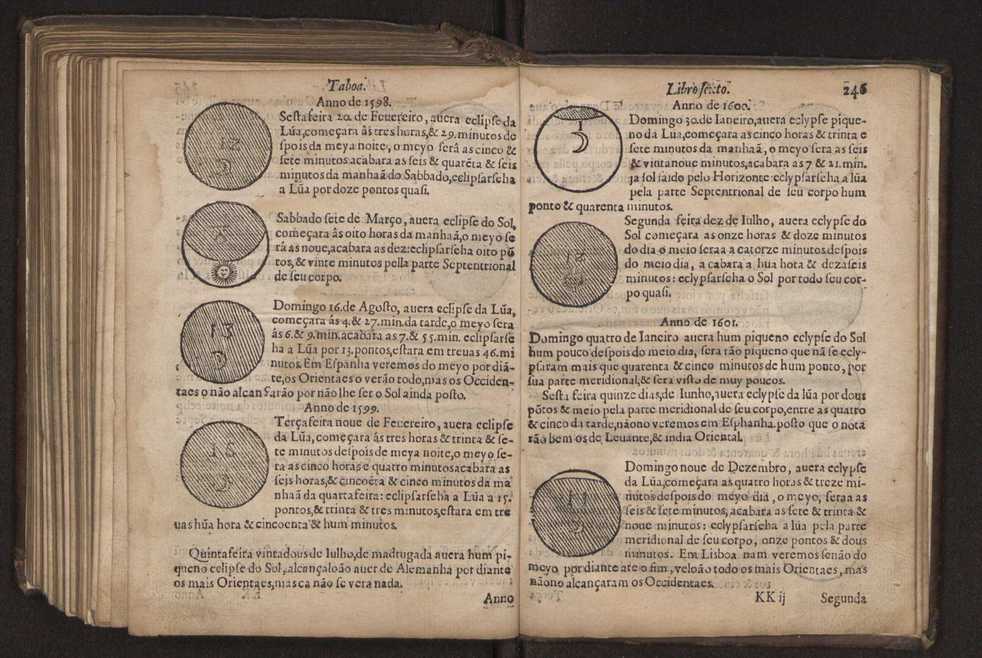 Taboa.
Anno de 1598.
Sesta feira 20. de Feuereiro, auera eclipse da
Lũa, começara às tres horas, & 29. minutos de
spois da meya noite, o meyo serâ as cinco &
sete minutos acabara as seis & quarẽta & seis
minutos da manhaã do Sabbado, eclipsarseha
a Lũa por doze pontos quasi.
12
Sabbado sete de Março, auera eclipse do Sol,
começara às oito horas da manhaã, o meyo se
rà as noue, acabara as dez: eclipsarseha oito põ
tos, & vinte minutos pella parte Septentrional
de seu corpo.
8
Domingo 16. de Agosto, auera eclipse da Lũa,
começara às 4. & 27. min. da tarde, o meyo sera
às 6. & 9. min. acabara as 7. & 55. min. eclipsarse
ha a Lũa por 13. pontos, estara em treuas 46. mi
nutos. Em Espanha veremos do meyo por diã-
te, os Orientaes o verão todo, mas os Occiden-
taes o não alcansarão por não lhe ser o Sol ainda posto.
13
Anno de 1599.
Terça feita noue de Feuereiro, auera eclipse
da Lũa, começara âs tres horas & trinta & se-
te minutos despois de meya noite, o meyo se-
ra as cinco horas e quatro minutos acabara as
seis horas, & cincoẽta & cinco minutos da ma
nhaã da quarta feira: eclipsarseha a Lũa a 15.
pontos, & trinta & tres minutos, estara em tre
uas hũa hora & cincoenta & hum minutos.
15
Quinta feira vinta dous de Iulho, de madrugada auera hum pi-
queno eclipse do Sol, alcançalo ão auer de Alemanha por diante
os mais Orientaes, mas ca não se vera nada.
Anno
Libro sexto.
246
Anno de 1600.
Domingo 30. de Ianeiro, auera eclypse pique-
no da Lua, começara as cinco horas & trinta e
sete minutos da manhaã, o meyo sera as seis
& vinta noue minutos, acabara as 7 & 21. min.
ja sol saido pelo Horizonte: eclypsarseha a lũa
pela parte Septentrional de seu corpo hum
ponto & quarenta minutos.
Segunda feira dez de Iulho, auera eclypse do
Sol começara as onze horas & doze minutos
do dia o meio sera a a catorze minutos despois
do meio dia, acabara a hũa hora & dezaseis
minutos: eclypsarseha o Sol por todo seu cor-
po quasi.
Anno de 1601.
Domingo quatro de Ianeiro auera hum piqueno eclypse do Sol
hum pouco despois do meio dia, sera tão piqueno que nã se ecly-
psaram mais que quarenta & cinco minutos de hum ponto, por
sua parte meridional, & sera visto de muy poucos.
Sesta feira quinze dias, de Iunho, auera eclypse da lũa por dous
põtos & meio pela parte meridional de seu corpo, entre as quatro
& cinco da tarde, não no veremos em Esphanha. posto que o nota
rão bem os de Leuante, & india Oriental.
Domingo noue de Dezembro, auera eclypse
da Lũa, começara as quatro horas & treze mi-
nutos despois do meyo dia, o meyo, sera a as
seis & sete minutos, acabara as sete & trinta &
noue minutos: eclypsarseha a lũa pela parte
meridional de seu corpo, onze pontos & dous
minutos. Em Lisboa nam veremos senão do
meyo por diante ate o fim, velo ão todo os mais Orientaes, mas
não no alcançaram os Occidentaes.
11
KK ij
Segunda